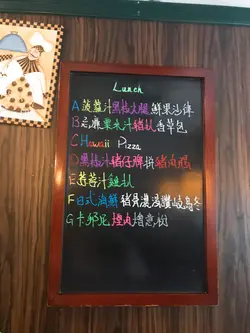 Lunch
A 菠蘿汁黑椒大腿鮮果沙律
B 忌廉粟米汁豬扒香草包
C Hawaii Pizza
D 黑椒汁豬仔髀拼豬肉腸
E 汁雞扒
F 日式海鮮豬骨濃湯讚岐烏冬
G 卡邦尼煙肉意粉